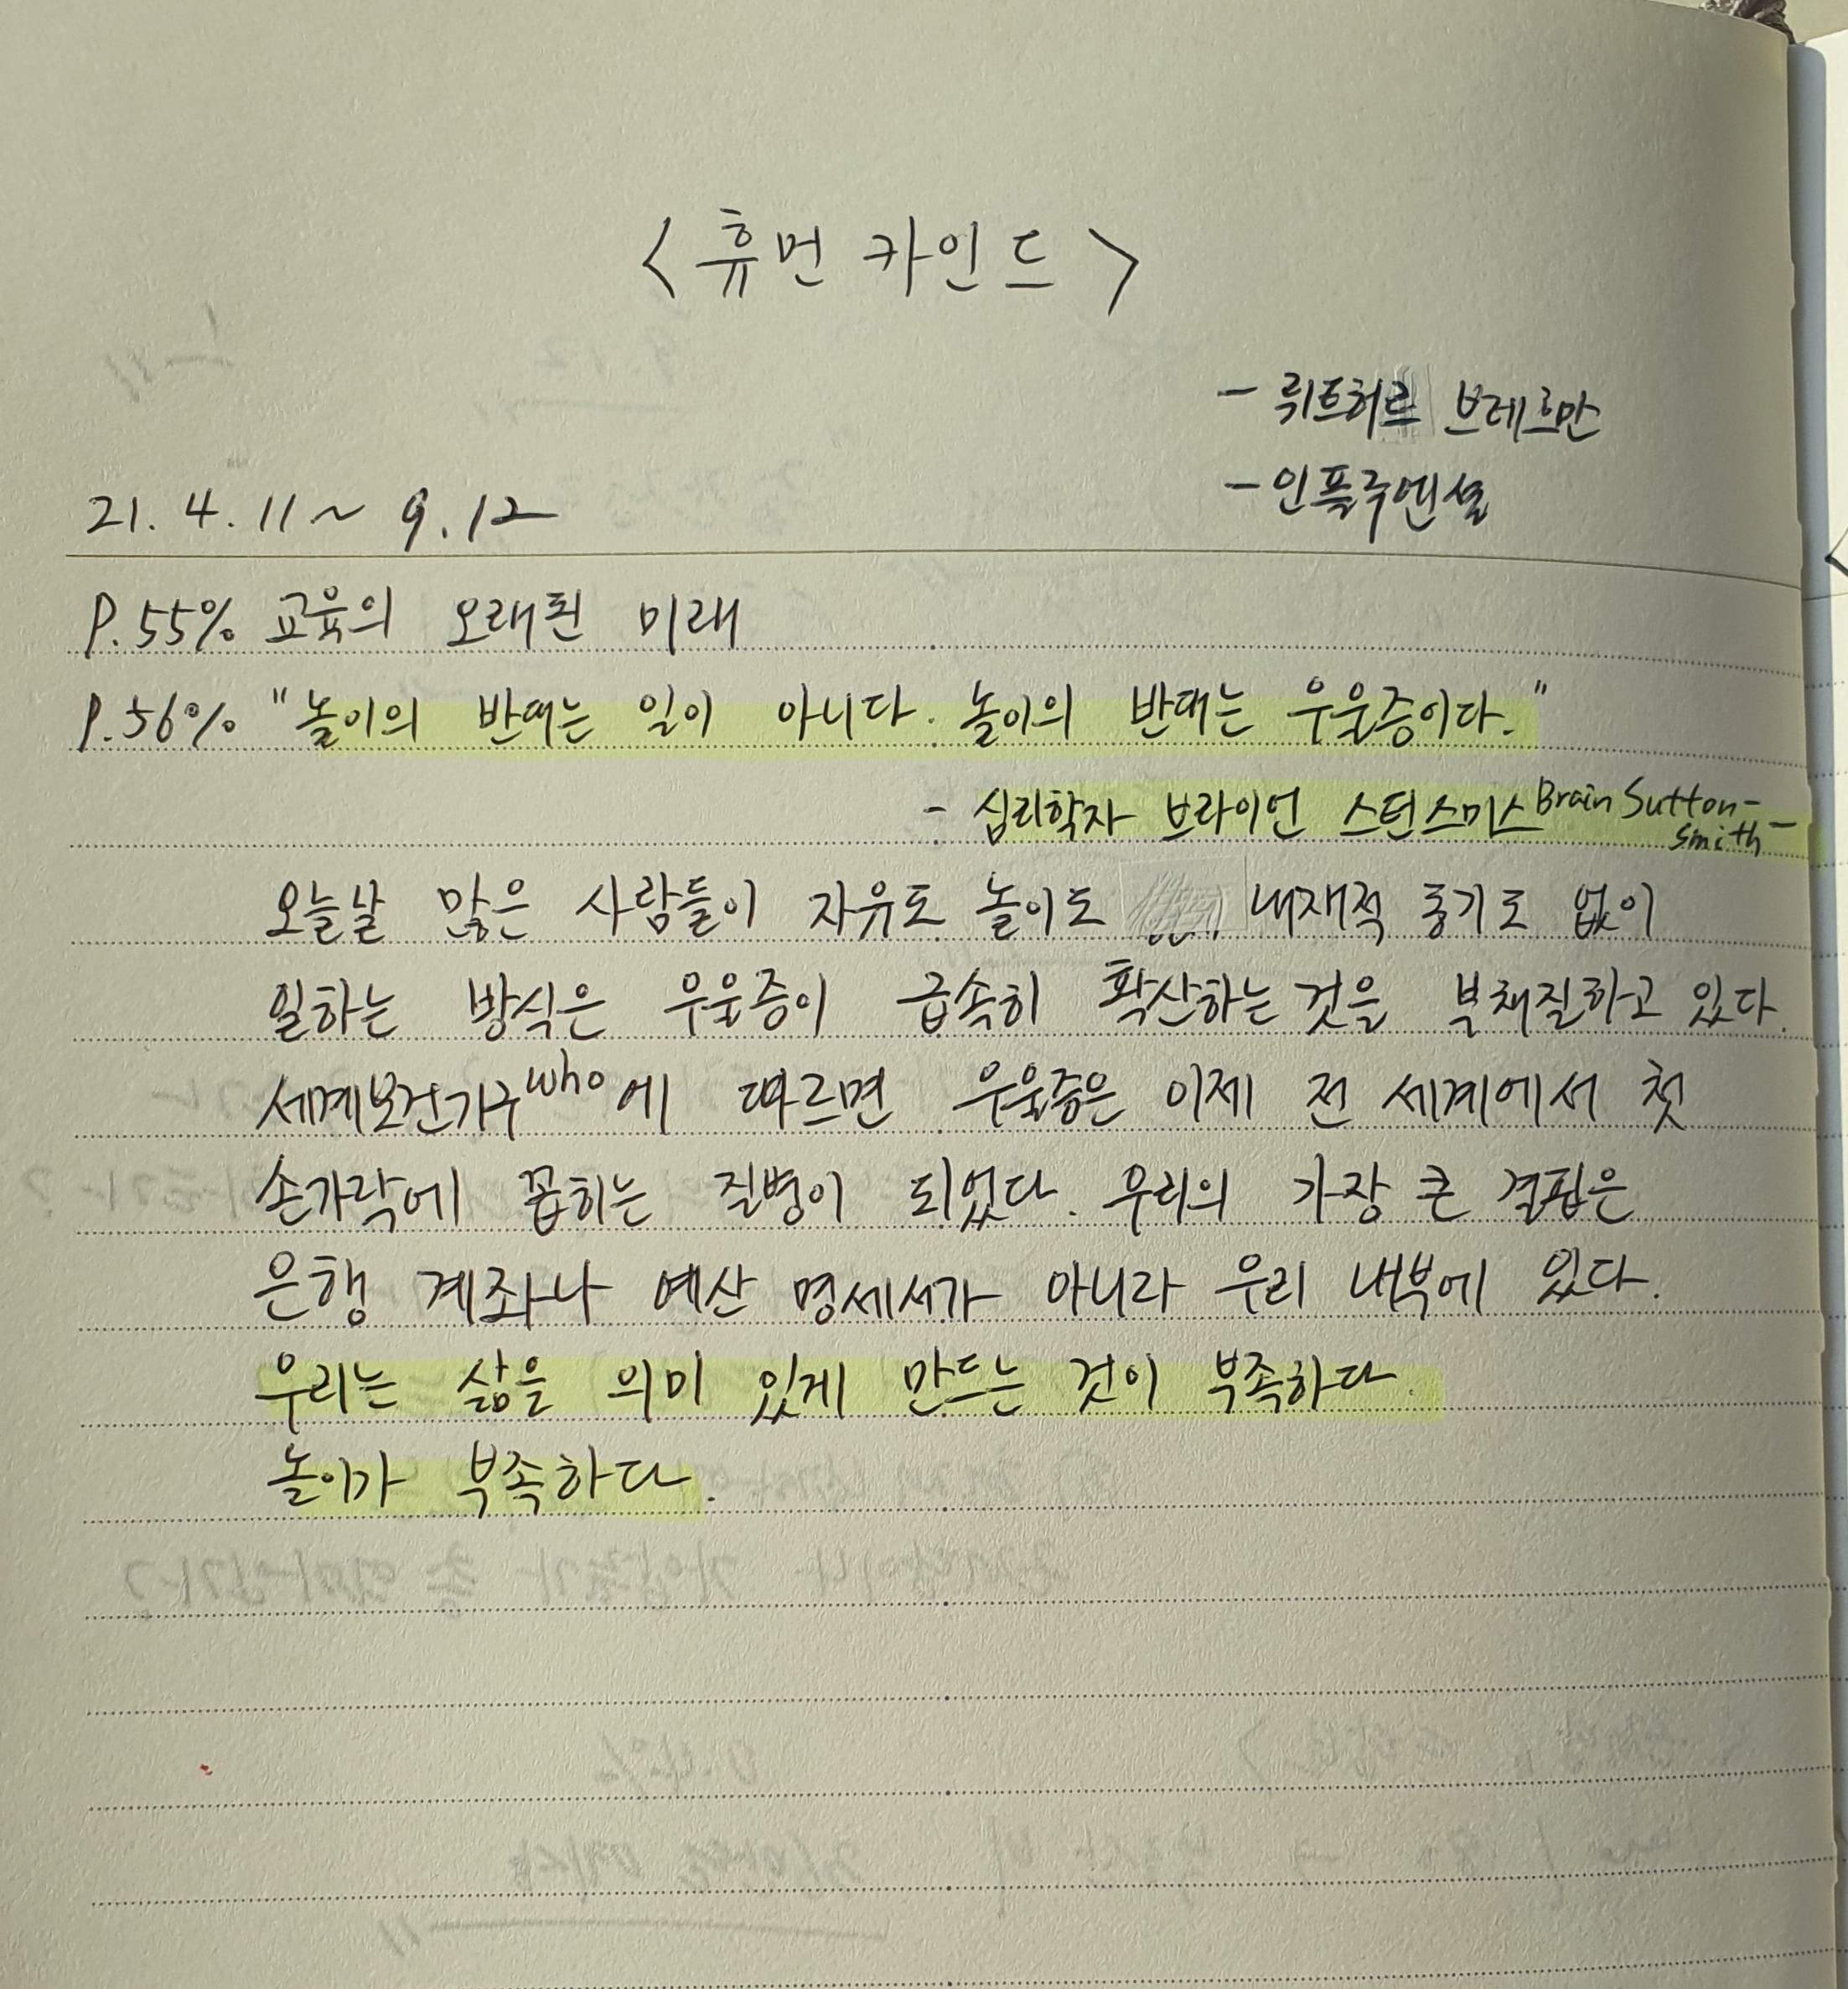 <휴먼 카인드>
- 뤼트허르 브레흐만
- 인플루엔셜
21. 4. 11 ~ 9. 12
P.55% 교육의 오래된 미래
P.56% "놀이의 반대는 일이 아니다. 놀이의 반대는 우울증이다."
- 심리학자 브라이언 스턴스미스 Brain Sutton-
Smith -
오늘날 많은 사람들이 자유도 놀이도 내재적 동기도 없이
일하는 방식은 우울증이 급속히 확산하는 것을 부채질하고 있다.
세계보건기구 who에 따르면 우울증은 이제 전 세계에서 첫
손가락에 꼽히는 질병이 되었다. 우리의 가장 큰 결핍은
은행 계좌나 예산 명세서가 아니라 우리 내부에 있다.
우리는 삶을 의미 있게 만드는 것이 부족하다.
놀이가 부족하다.